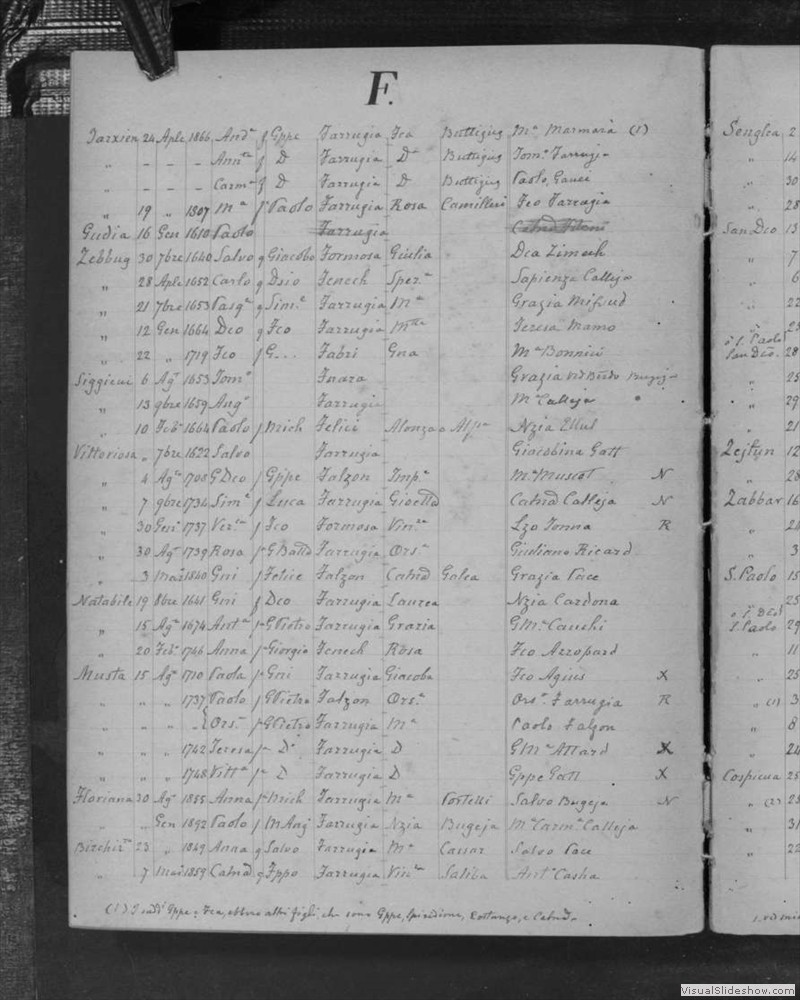 F.
Tarxien 24 Aple 1866 Andª f Gppe Farrugia Fca Buttigieg Mª Marmarà (1)
„ – – – Annᵗᵃ f D Farrugia D Buttigieg Tomº Farrugia
„ – – – Carmª f D Farrugia D Buttigieg Paolo Gauci
„ 19 „ 1807 Mª f Paolo Farrugia Rosa Camilleri Fco Farrugia
Gudia 16 Gen 1610 Paolo Farrugia
Zebbug 30 7bre 1640 Salvo q Giacobo Formosa Giulia Dca Zimech
„ 28 Aple 1652 Carlo q Dsio Fenech Sperª Sapienza Calleja
„ 21 7bre 1653 Pasqº q Simᵉ Farrugia Mª Grazia Mifsud
„ 12 Gen 1664 Dco q Fco Farrugia Mᵗᵗᵃ Teresa Mamo
„ 22 „ 1719 Fco f G... Fabri Gna Mª Bonnici
Siggieui 6 Agº 1653 Tomº Grazia
„ 13 9bre 1659 Angº Farrugia Mª Calleja
„ 10 Febº 1664 Paolo f Mich Felici Alonza Nzia Ellul
Vittoriosa „ 7bre 1622 Salvo Farrugia Giacobina Gatt
„ 4 Agº 1705 GDco f Gppe Falzon Impª Mª Muscat N
„ 7 9bre 1734 Simᵉ f Luca Farrugia Gioetta Catnd Calleja N
„ 30 Genº 1737 Verᶜᵃ f Fco Formosa Vinᶻᵃ Lzo Tonna R
„ 30 Agº 1739 Rosa f GBatta Farrugia Orsª Giuliano Ricard
„ 3 Mar 1840 Gni f Felice Falzon Catnd Galea Grazia Pace
Notabile 19 8bre 1641 Gni f Dco Farrugia Laurea Nzia Cardona
„ 15 Agº 1674 Antª f GPietro Farrugia Grazia GMª Cauchi
„ 20 Febº 1746 Anna f Giorgio Fenech Rosa Fco Azzopard
Musta 15 Agº 1710 Paola f Gni Farrugia Giacoba Fco Agius X
„ „ „ 1737 Paolo f GPietro Falzon Orsª Orsª Farrugia R
„ „ „ „ Orsª f GPietro Farrugia Mª Paolo Falzon
„ „ „ 1742 Teresa f Dº Farrugia D GMª Attard X
„ „ „ 1748 Vittª f D Farrugia D Gppe Gatt X
Floriana 30 Agº 1855 Anna f Mich Farrugia Mª Portelli Salvo Bugeja N
„ „ Gen 1892 Paolo f MAng Farrugia Nzia Bugeja Mª Carmª Calleja
Birchirᵃ 23 „ 1849 Anna q Salvo Farrugia Mª Cassar Salvo Pace
„ 7 Mar 1859 Catnd q Fppo Farrugia Vinᶻᵃ Saliba Antº Casha
(1) I sudⁱ Gppe e Fca, ebbero altri figli, che sono Gppe, Spiridione, Costanza, e Catnd.
Senglea 2
„ 14
„ 30
„ 28
San Dco 13
„ 7
„ 6
„ 22
„ 23
o S. Paolo
San Dco. 28
„ 25
„ 29
„ 21
Zejtun 12
„ 28
Zabbar 16
„ 24
„ 3
S. Paolo 15
„ 25
S. Paolo 29
„ 11
„ 25
„ (1) 3
„ 8
„ 24
Cospicua 25
„ (2) 23
„ 31
„ 22
VisualSlideshow.com